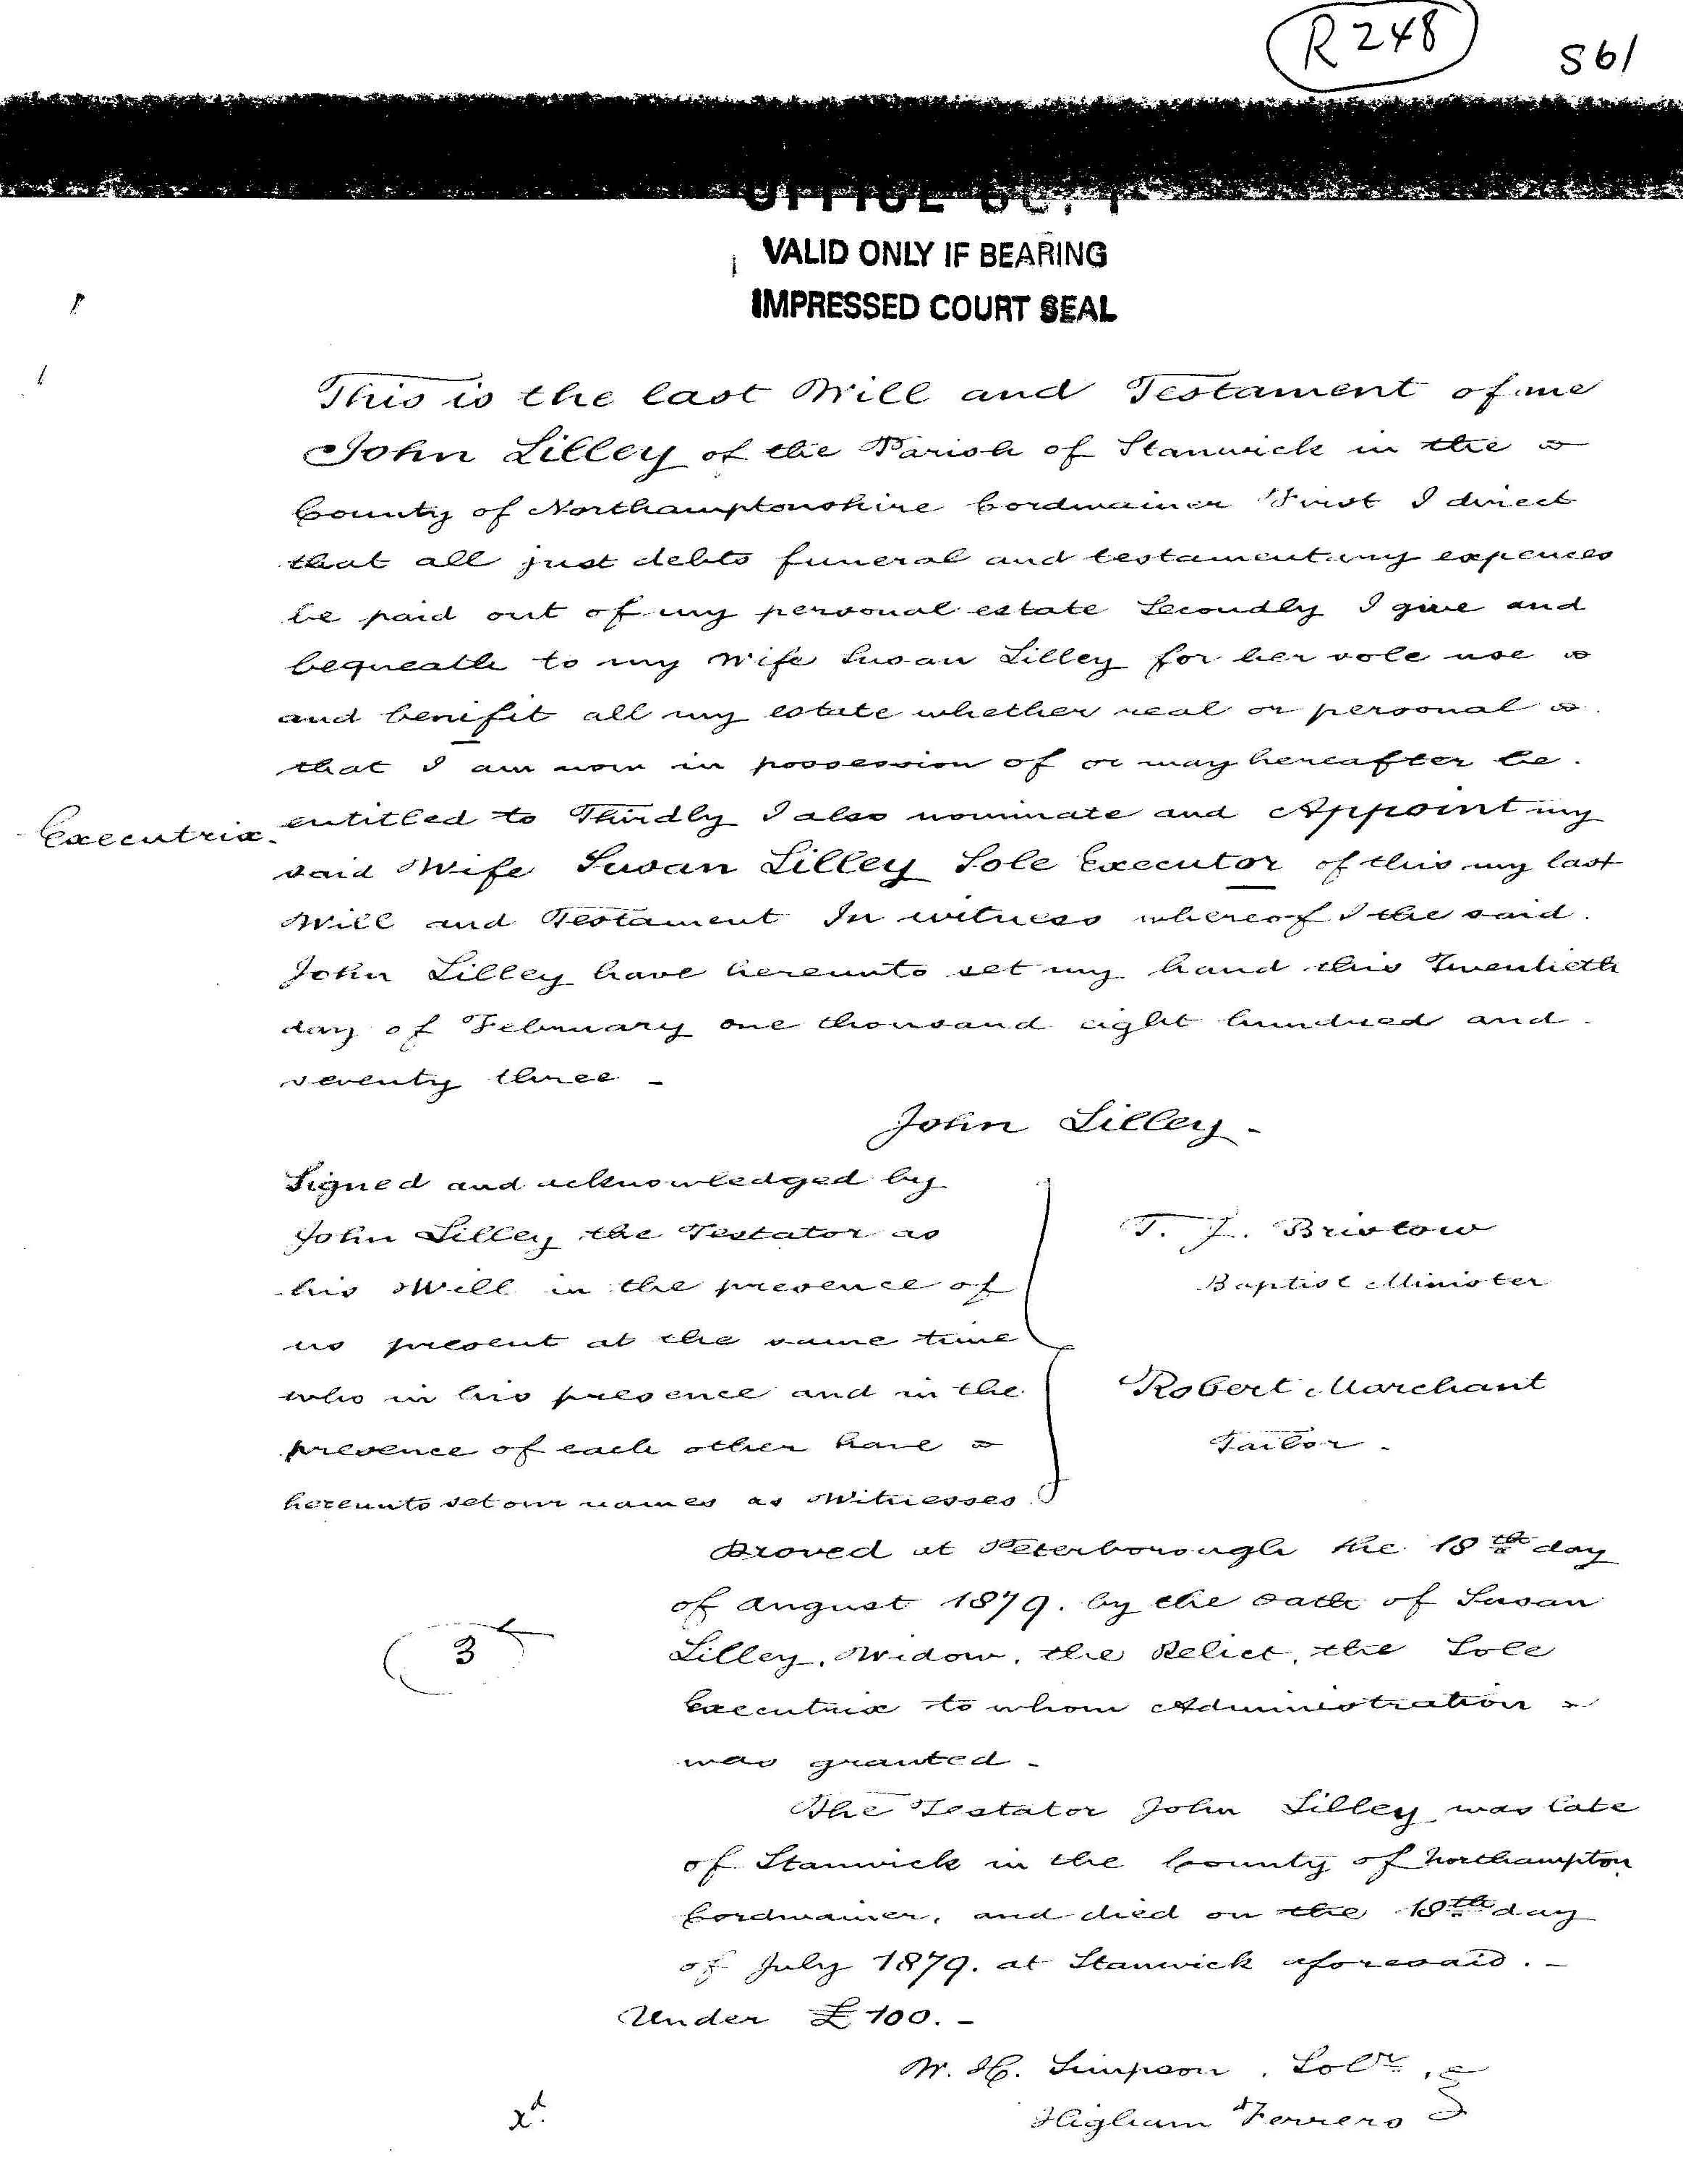 R 248
561
OFFICE COPY
VALID ONLY IF BEARING
IMPRESSED COURT SEAL
This is the last Will and Testament of me
John Lilley of the Parish of Stanwick in the
County of Northamptonshire Cordwainer First I direct
that all just debts funeral and testamentary expences
be paid out of my personal estate Secondly I give and
bequeath to my Wife Susan Lilley for her sole use
and benifit all my estate whether real or personal
that I am now in possession of or may hereafter be
Executrix. entitled to Thirdly I also nominate and Appoint my
said Wife Susan Lilley Sole Executor of this my last
Will and Testament In witness whereof I the said
John Lilley have hereunto set my hand this Twentieth
day of February one thousand eight hundred and
seventy three -
John Lilley -
Signed and acknowledged by
John Lilley the Testator as
his Will in the presence of
us present at the same time
who in his presence and in the
presence of each other have
hereunto set our names as Witnesses
T. J. Bristow
Baptist Minister
Robert Marchant
Tailor -
Proved at Peterborough the 18th day
of August 1879. by the oath of Susan
Lilley, Widow, the Relict, the Sole
Executrix to whom Administration
was granted -
3
The Testator John Lilley was late
of Stanwick in the County of Northampton
Cordwainer, and died on the 18th day
of July 1879. at Stanwick aforesaid. -
Under £100. -
W. H. Simpson, Solr,
Higham Ferrers
xd.